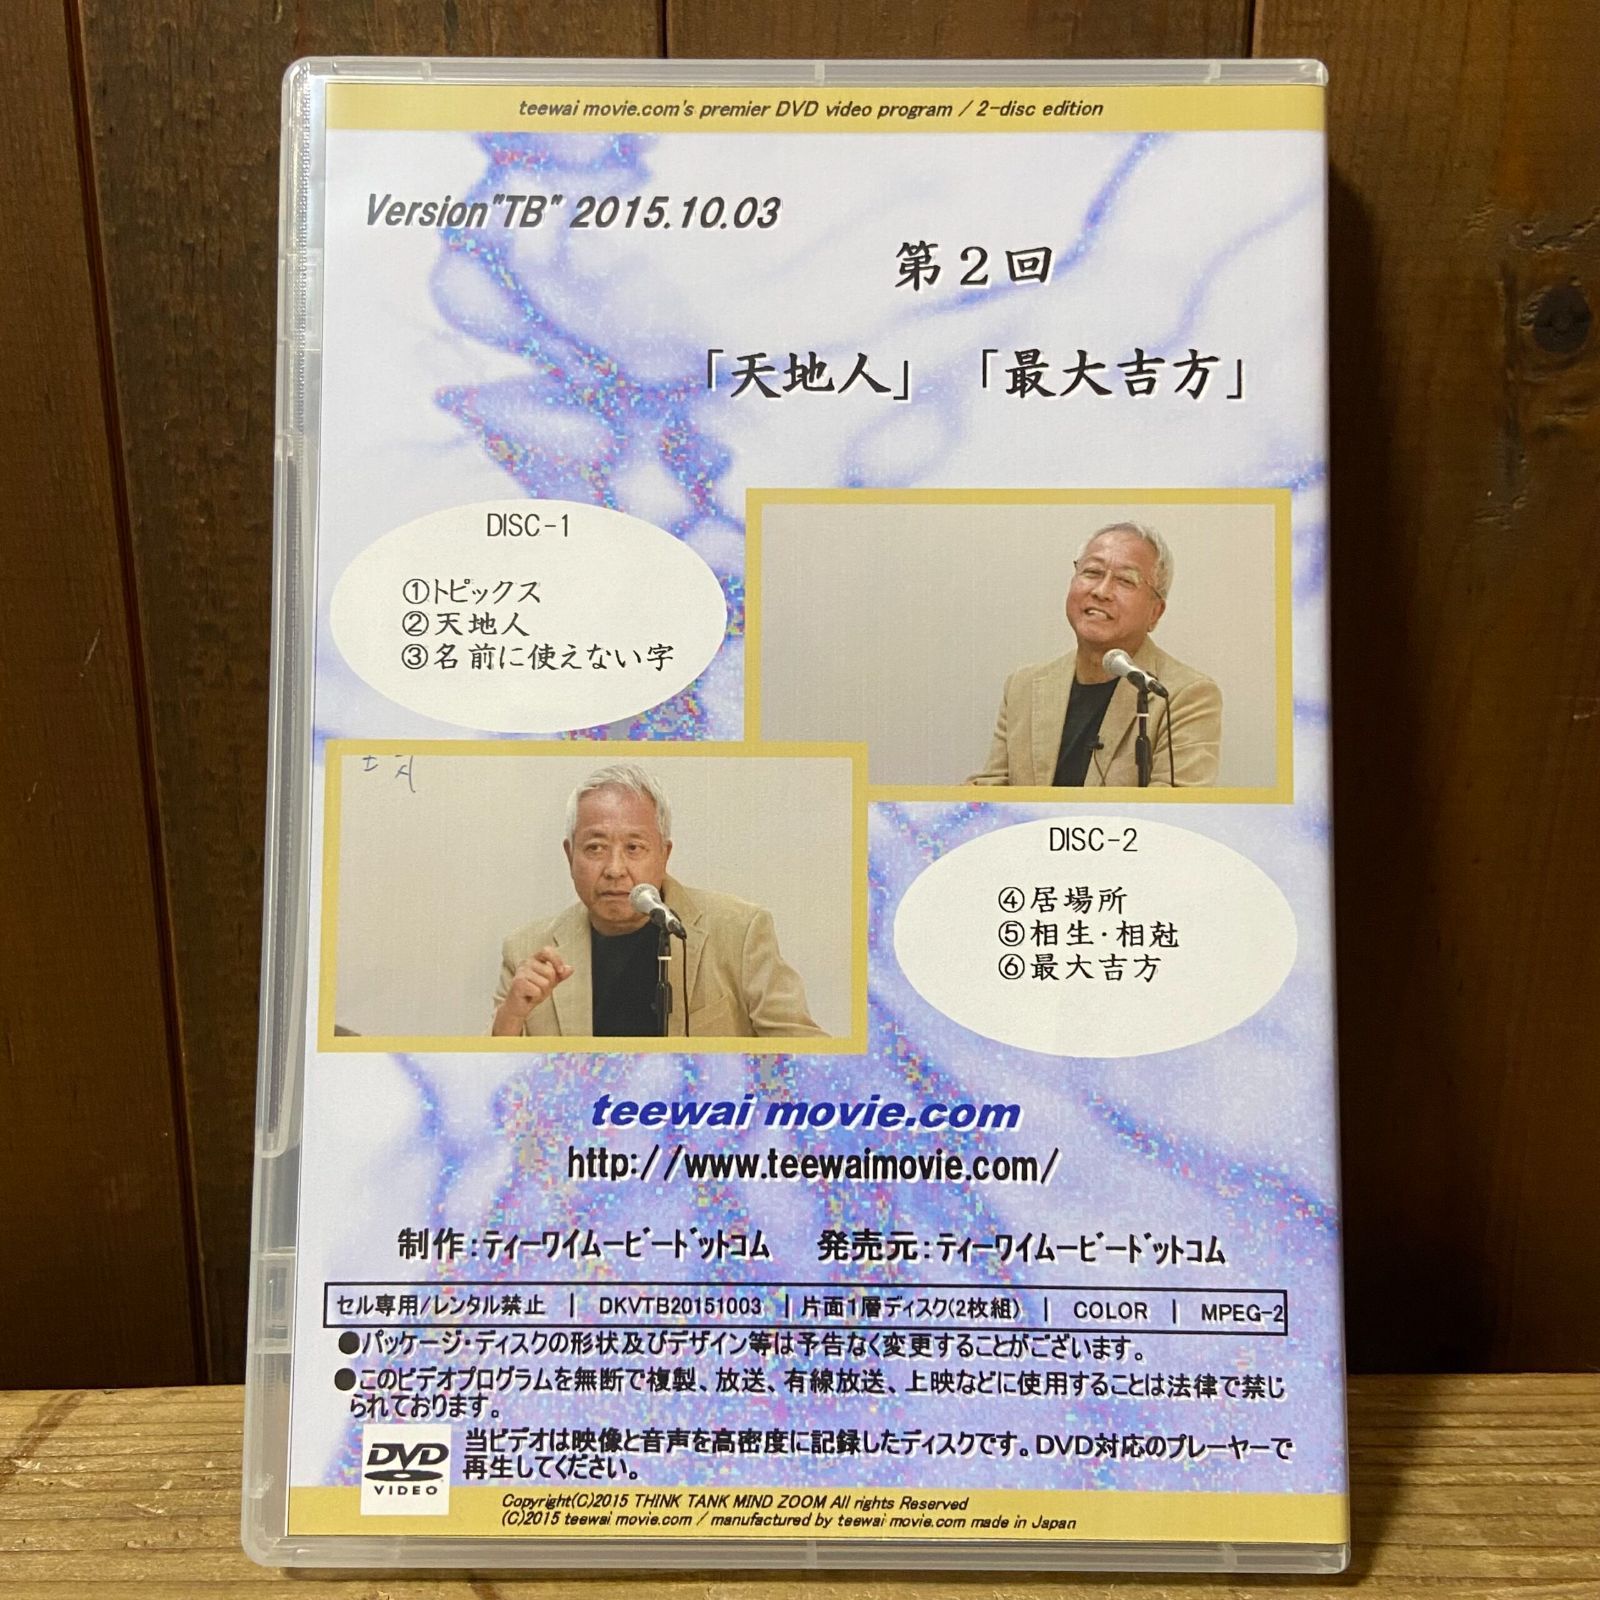 teewai movie.com's premier DVD video program / 2-disc edition
Version"TB" 2015.10.03
第２回
「天地人」「最大吉方」
DISC-1
①トピックス
②天地人
③名前に使えない字
DISC-2
④居場所
⑤相生・相剋
⑥最大吉方
teewai movie.com
http://www.teewaimovie.com/
制作：ティーワイムービードットコム　発売元：ティーワイムービードットコム
セル専用/レンタル禁止 | DKVTB20151003 | 片面1層ディスク(2枚組) | COLOR | MPEG-2
●パッケージ・ディスクの形状及びデザイン等は予告なく変更することがございます。
●このビデオプログラムを無断で複製、放送、有線放送、上映などに使用することは法律で禁じ
られております。
DVD
VIDEO
当ビデオは映像と音声を高密度に記録したディスクです。DVD対応のプレーヤーで
再生してください。
Copyright(C)2015 THINK TANK MIND ZOOM All rights Reserved
(C)2015 teewai movie.com / manufactured by teewai movie.com made in Japan